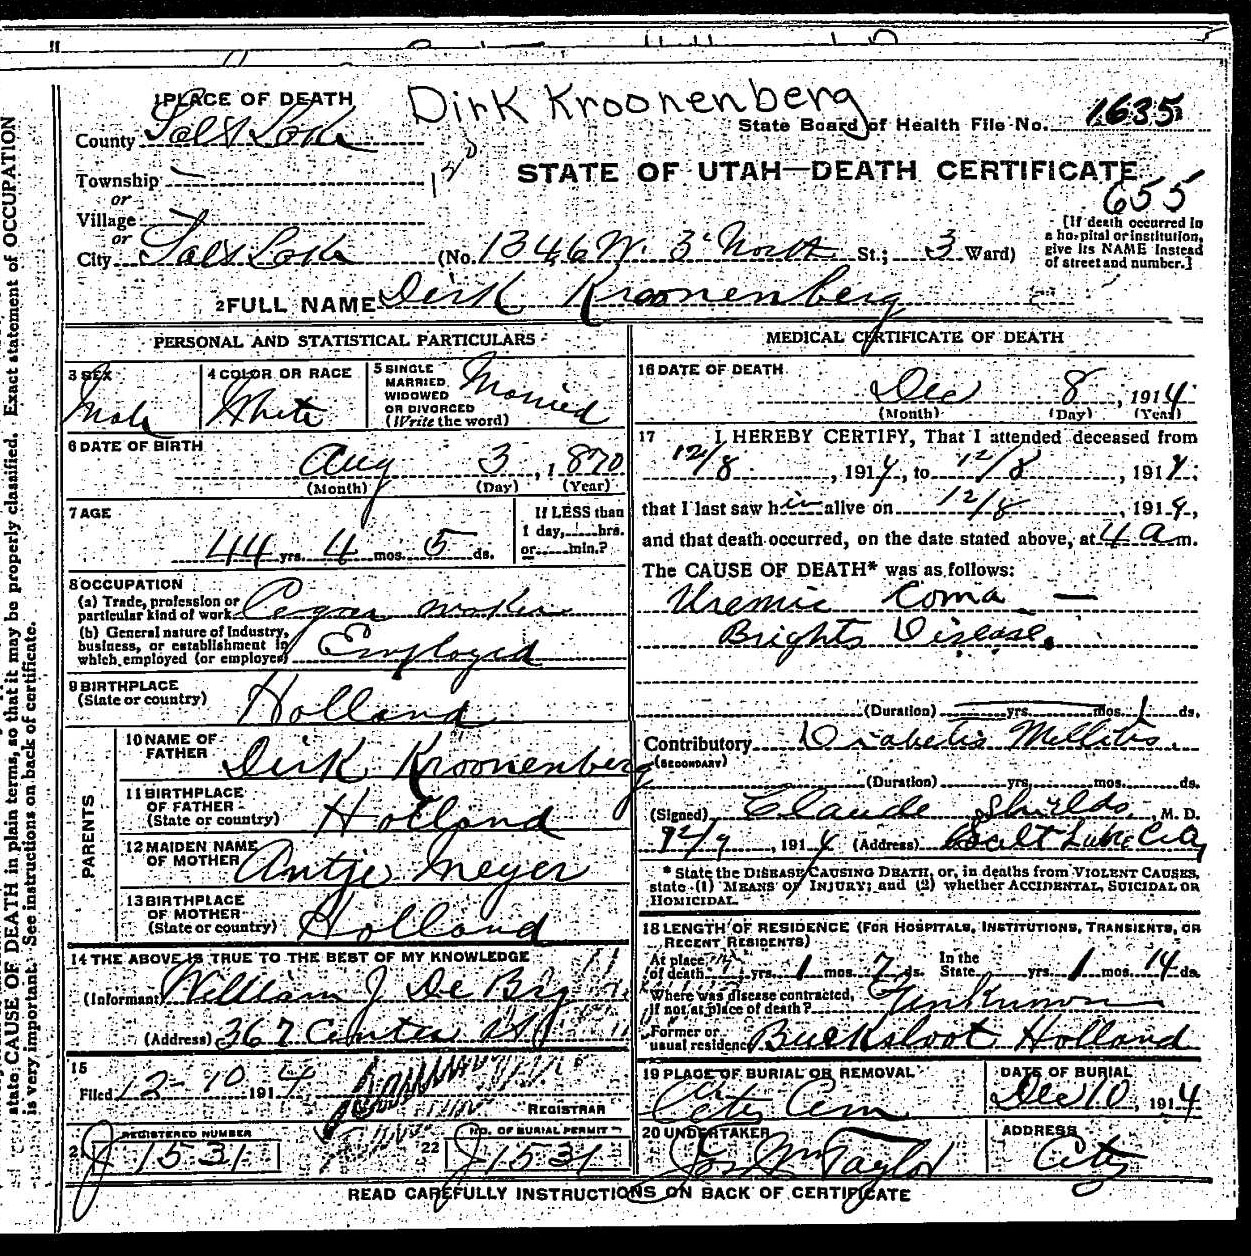 Dirk Kroonenberg
1 PLACE OF DEATH
County Salt Lake
State Board of Health File No. 1635
Township —
or
STATE OF UTAH—DEATH CERTIFICATE
655
Village
or
City Salt Lake (No. 1346 W. 3d North St.; 3 Ward)
[If death occurred in
a hospital or institution,
give its NAME instead
of street and number.]
2 FULL NAME Dirk Kroonenberg
PERSONAL AND STATISTICAL PARTICULARS
3 SEX
Male
4 COLOR OR RACE
White
5 SINGLE
MARRIED
WIDOWED
OR DIVORCED
(Write the word)
Married
6 DATE OF BIRTH
Aug 3, 1870
(Month) (Day) (Year)
7 AGE
44 yrs. 4 mos. 5 ds.
If LESS than
1 day, hrs.
or min.?
8 OCCUPATION
(a) Trade, profession or
particular kind of work Cegar maker
(b) General nature of Industry,
business, or establishment in
which employed (or employer) Employed
9 BIRTHPLACE
(State or country) Holland
PARENTS
10 NAME OF
FATHER Dirk Kroonenberg
11 BIRTHPLACE
OF FATHER
(State or country) Holland
12 MAIDEN NAME
OF MOTHER Antje Meyer
13 BIRTHPLACE
OF MOTHER
(State or country) Holland
14 THE ABOVE IS TRUE TO THE BEST OF MY KNOWLEDGE
(Informant William J De Bry
(Address) 367 Center St
15
Filed 12-10 1914
REGISTRAR
21 REGISTERED NUMBER
J 1531
22 NO. OF BURIAL PERMIT
J 1531
MEDICAL CERTIFICATE OF DEATH
16 DATE OF DEATH
Dec 8, 1914
(Month) (Day) (Year)
17 I HEREBY CERTIFY, That I attended deceased from
12/8, 1914, to 12/8, 1914,
that I last saw him alive on 12/8, 1914,
and that death occurred, on the date stated above, at 4 a m.
The CAUSE OF DEATH* was as follows:
Uremic Coma —
Brights Disease.
(Duration) yrs. mos. 1 ds.
Contributory Diabetis Mellitis.
(SECONDARY)
(Duration) yrs. mos. ds.
(Signed) Claude Shields, M. D.
12/9, 1914 (Address) Salt Lake City
* State the DISEASE CAUSING DEATH, or, in deaths from VIOLENT CAUSES,
state (1) MEANS OF INJURY; and (2) whether ACCIDENTAL, SUICIDAL OR
HOMICIDAL.
18 LENGTH OF RESIDENCE (FOR HOSPITALS, INSTITUTIONS, TRANSIENTS, OR
RECENT RESIDENTS)
At place
of death yrs. 1 mos. 7 ds. In the
State yrs. 1 mos. 14 ds.
Where was disease contracted,
if not at place of death? Unknown
Former or
usual residence Bucksloot Holland
19 PLACE OF BURIAL OR REMOVAL
City Cem
DATE OF BURIAL
Dec 10, 1914
20 UNDERTAKER
Jos Wm Taylor
ADDRESS
City
READ CAREFULLY INSTRUCTIONS ON BACK OF CERTIFICATE
state CAUSE OF DEATH in plain terms, so that it may be properly classified. Exact statement of OCCUPATION
is very important. See instructions on back of certificate.